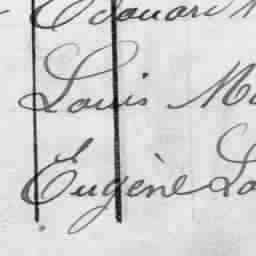 Edouard
Louis
Eugène